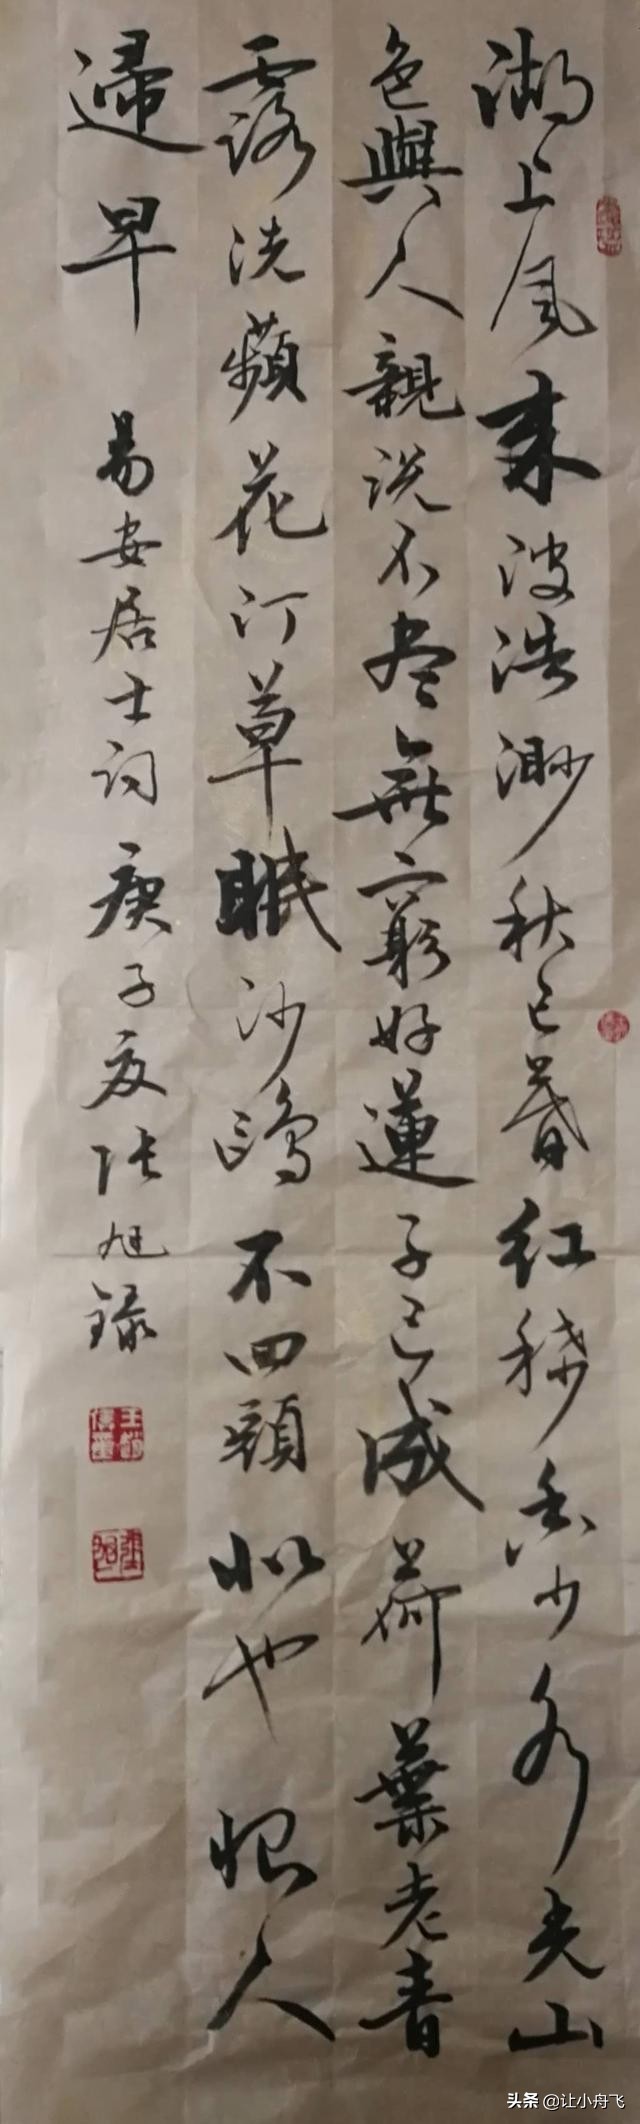 湖上風来波浩渺秋已暮紅稀香少水光山
色與人親説不尽無窮好蓮子已成荷葉老青
露洗蘋花汀草眠沙鷗不回頭似也恨人
歸早
易安居士詞庚子夏张旭録
头条 @让小舟飞